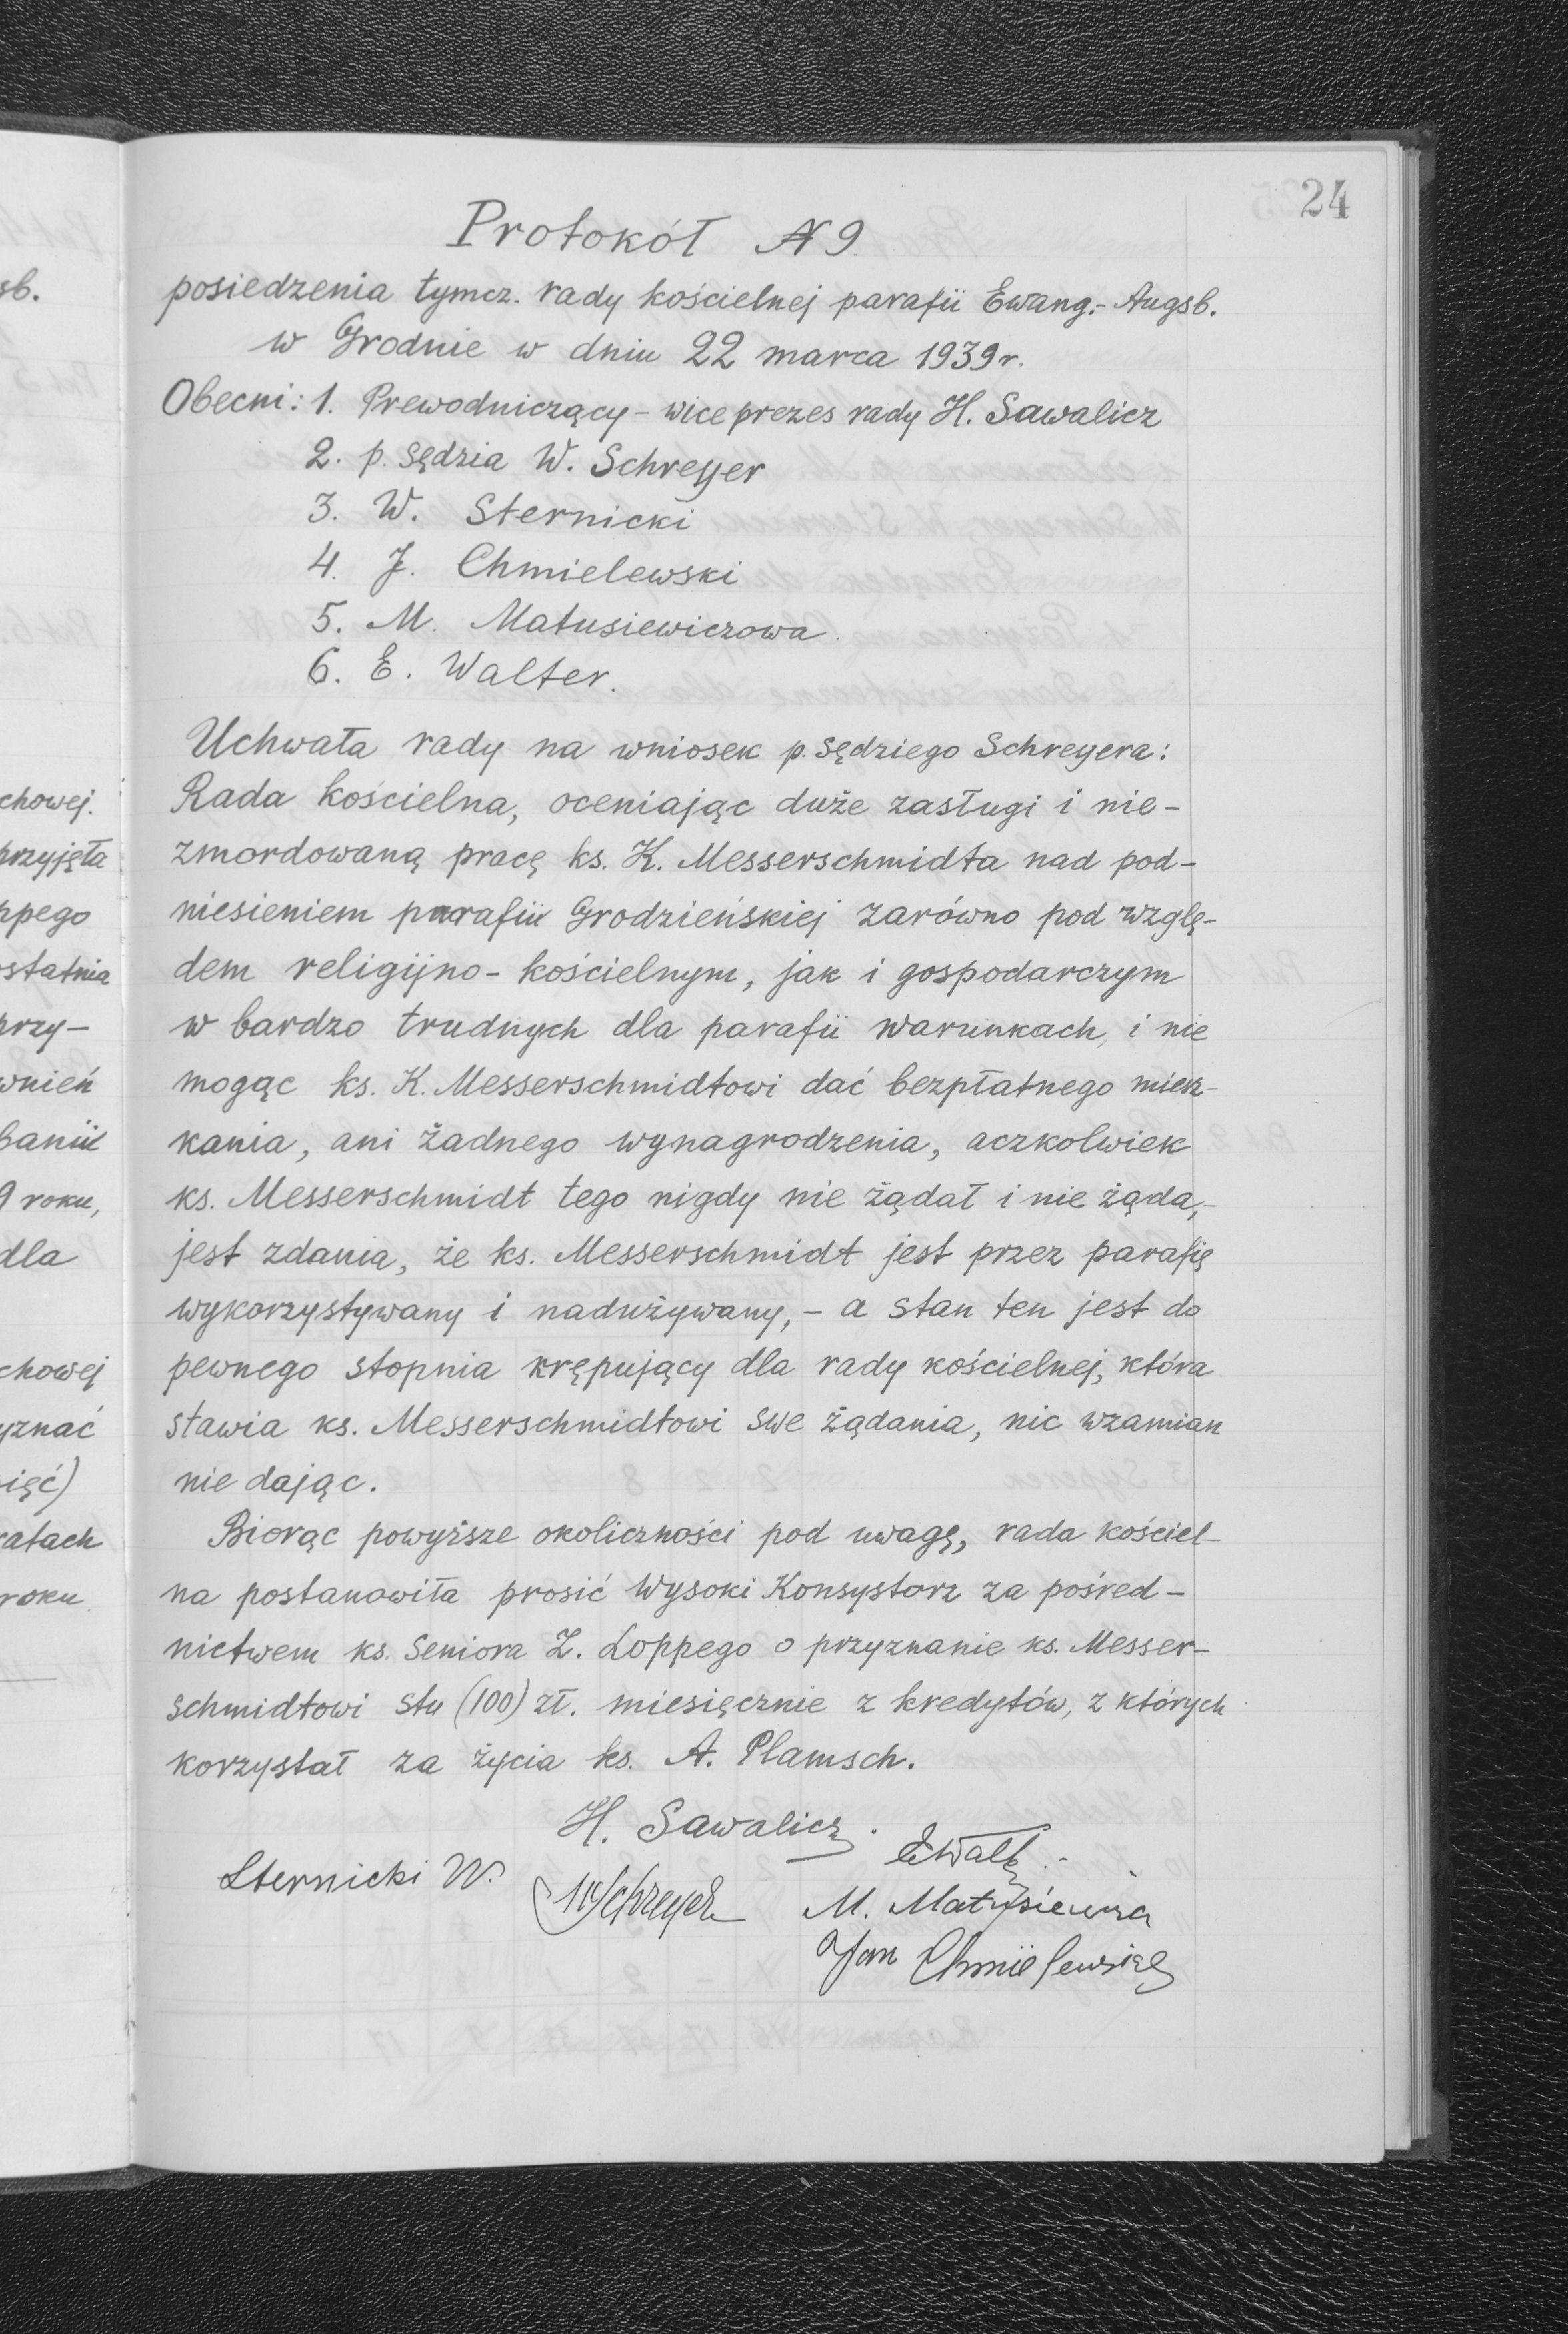 24
Protokół N 9.
posiedzenia tymcz. rady kościelnej parafii Ewang.-Augsb.
w Grodnie w dniu 22 marca 1939 r.
Obecni: 1. Prewodniczący – wice prezes rady H. Sawalicz
2. p. sędzia W. Schreyer
3. W. Sternicki
4. J. Chmielewski
5. M. Matusiewiczowa.
6. E. Walter.
Uchwała rady na wniosek p. sędziego Schreyera:
Rada kościelna, oceniając duże zasługi i nie-
zmordowaną pracę ks. K. Messerschmidta nad pod-
niesieniem parafii Grodzieńskiej zarówno pod wzglę-
dem religijno-kościelnym, jak i gospodarczym
w bardzo trudnych dla parafii warunkach, i nie
mogąc ks. K. Messerschmidtowi dać bezpłatnego miesz-
kania, ani żadnego wynagrodzenia, aczkolwiek
ks. Messerschmidt tego nigdy nie żądał i nie żąda,-
jest zdania, że ks. Messerschmidt jest przez parafię
wykorzystywany i nadużywany, – a stan ten jest do
pewnego stopnia krępujący dla rady kościelnej, która
stawia ks. Messerschmidtowi swe żądania, nic wzamian
nie dając.
Biorąc powyższe okoliczności pod uwagę, rada kościel-
na postanowiła prosić Wysoki Konsystorz za pośred-
nictwem ks. Seniora Z. Loppego o przyznanie ks. Messer-
schmidtowi stu (100) zł. miesięcznie z kredytów, z których
korzystał za życia ks. A. Plamsch.
H. Sawalicz.
Sternicki W.
WSchreyer
EWalt
M. Matusiewicz
Jan Chmielewski
sb.
chowej.
przyjęła
ppego
ostatnia
przy-
wnień
baniu
9 roku,
dla
chowej
yznać
ięć)
ratach
roku.